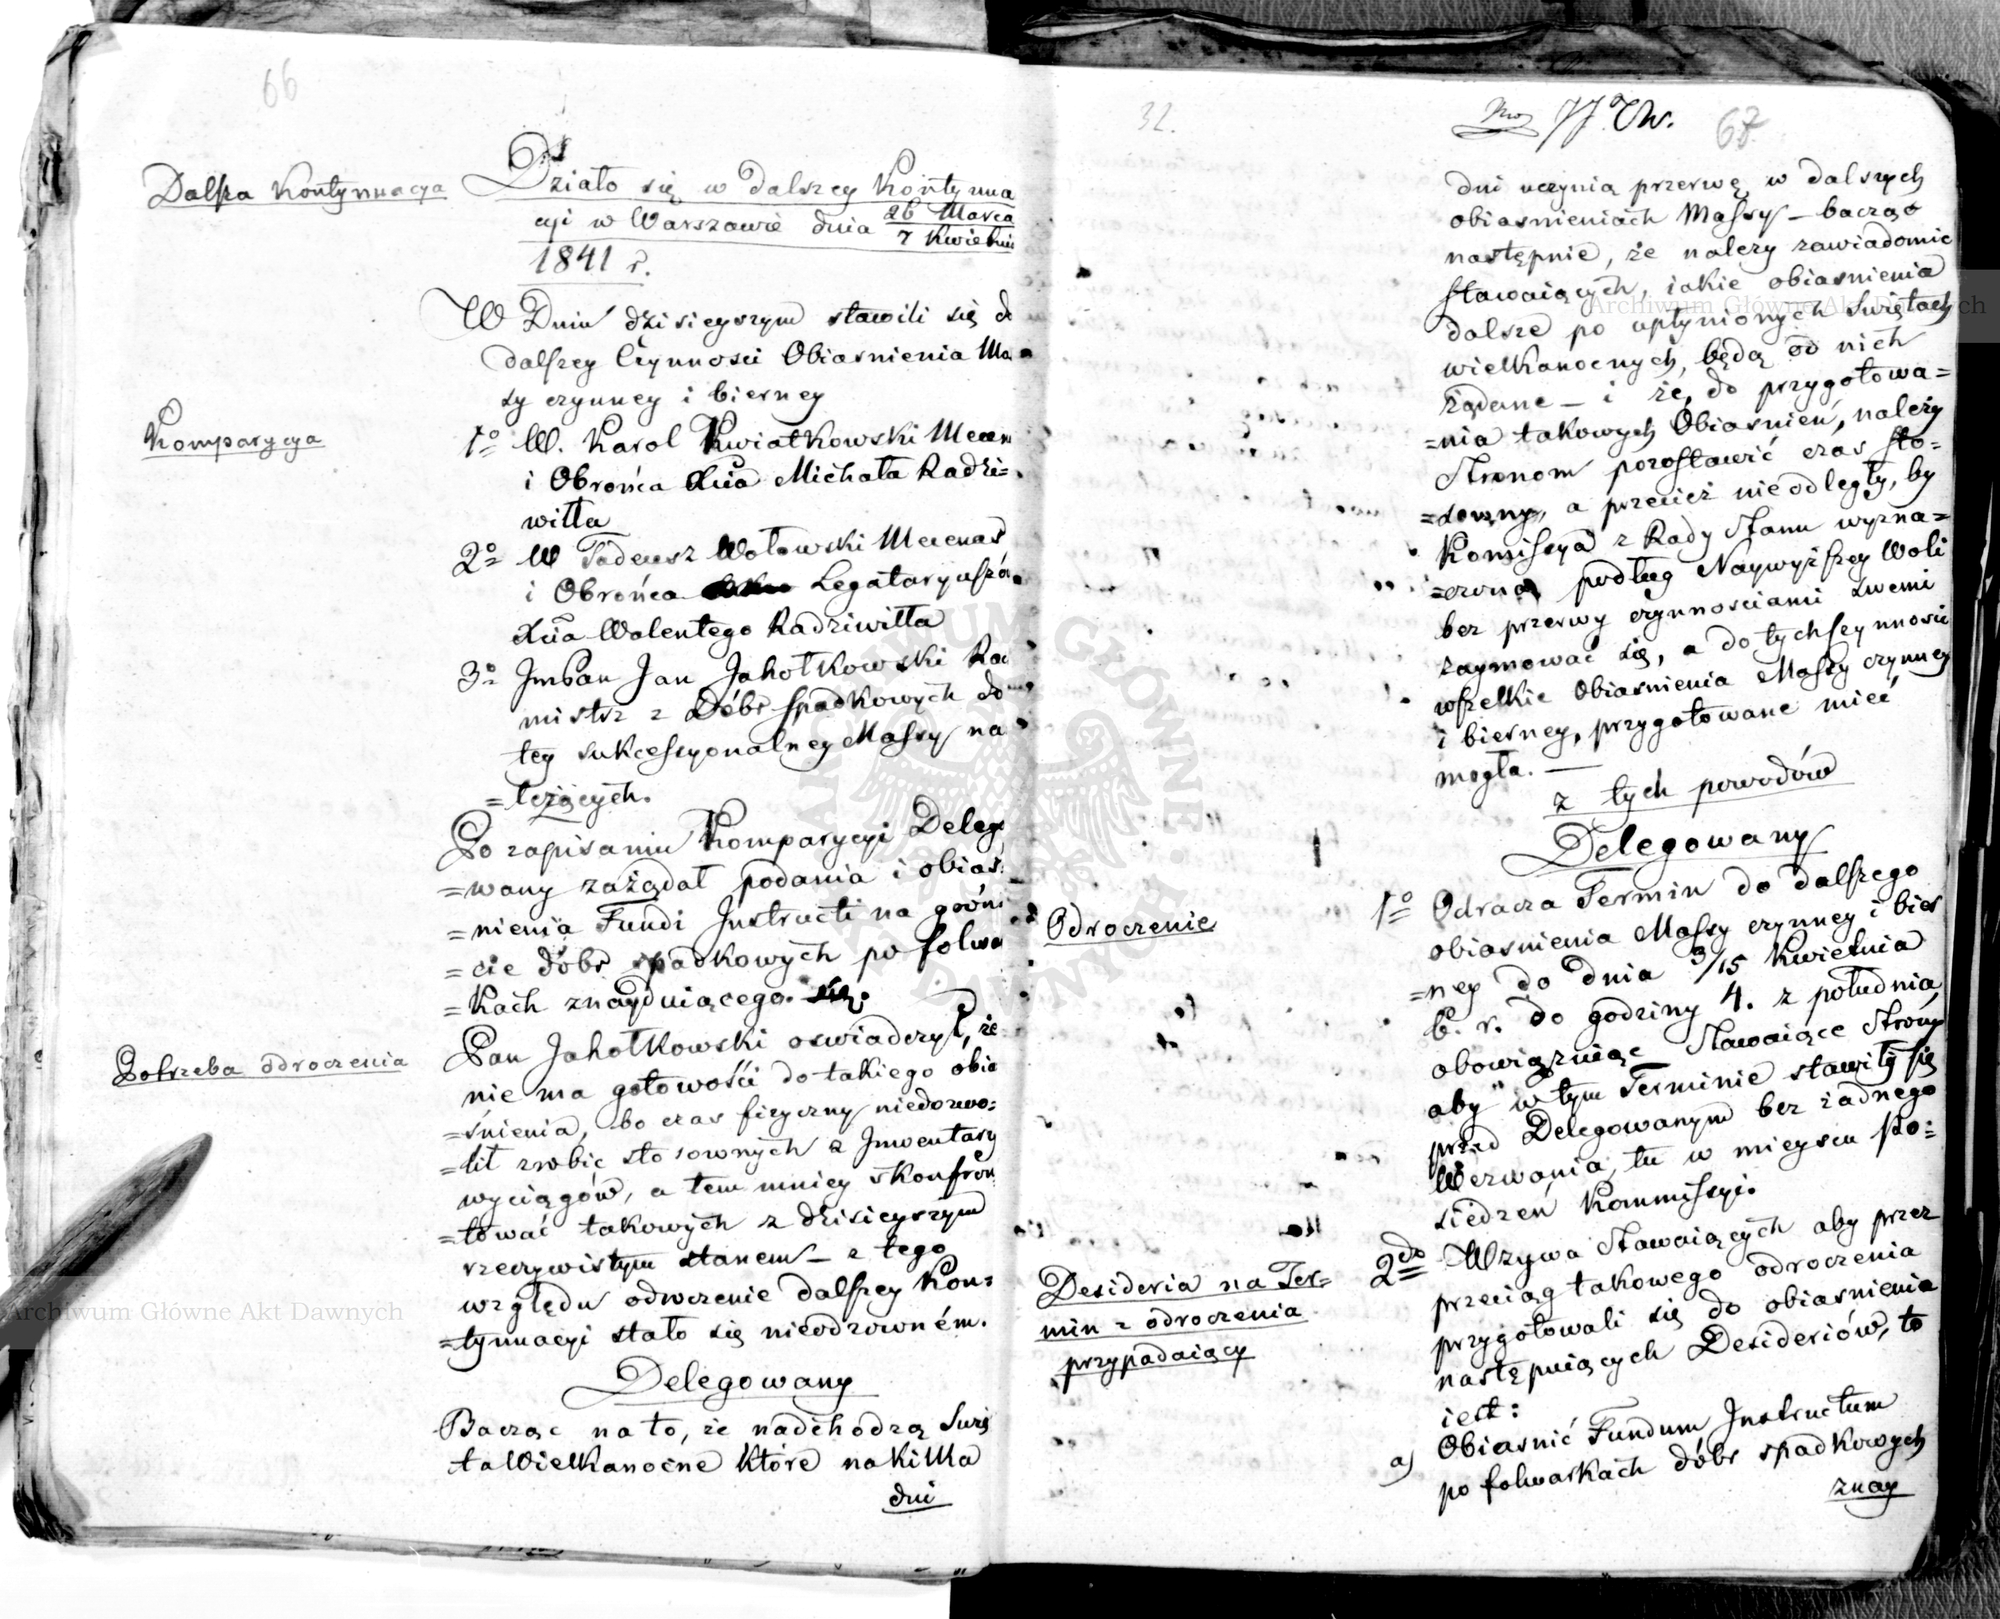 66
Dalsza Kontynuacya
Działo się w dalszey Kontynua
cyi w Warszawie dnia 26 Marca
7 Kwietnia
1841 r.
W Dniu dzisieyszym stawili się do
dalszey Czynności Obiasnienia Ma
sy czynney i bierney
Komparycya
1o W. Karol Kwiatkowski Mecen
i Obrońca Xcia Michała Radzi=
wiłła
2o W Tadeusz Wołowski Mecenas
i Obrońca Legataryuszó
Xcia Walentego Radziwiłła
3o JmPan Jan Jahołkowski Rac
mistrz z Dóbr spadkowych do
tey sukcessyonalney Massy na
=leżących.
Po zapisaniu Komparycyi Delego
=wany zażądał podania i obiaś
=nienia Fundi Instructi na grónc
=cie dóbr spadkowych po folwa
=kach znayduiącego się.
Potrzeba odroczenia
Pan Jahołkowski oswiadczył, że
nie ma gotowości do takiego obia
=śnienia, bo czas fizyczny niedozwo=
=lił zrobić stosownych z Inwentarzy
wyciągów, a tem mniey skonfron
=tować takowych z dzisieyszym
rzeczywistym stanem – z tego
względu odroczenie dalszey Kon=
=tynuacyi stało się nieodzowném.
Delegowany
Bacząc na to, że nadchodzą Swię
ta Wielkanocne które na kilka
dni
32.
67
dni uczynią przerwę w dalszych
obiasnieniach Massy – bacząc
następnie, że należy zawiadomić
stawaiących, iakie obiasnienia
dalsze po upłynionych Swiętach
wielkanocnych, będą od nich
żądane – i że, do przygotowa=
=nia takowych Obiasnień, należy
Stronom pozostawić czas sto=
=sowny, a przecież nieodległy, by
Komissya z Rady Stanu wyzna=
=czona podług Naywyższey Woli
bez przerwy czynnosciami swemi
zaymować się, a do tych czynności
wszelkie Obiasnienia Massy czynney
i bierney, przygotowane mieć
mogła. —
z tych powodów
Delegowany
Odroczenie
1o Odracza Termin do dalszego
obiasnienia Massy czynney i bier
=ney do dnia 3/15 Kwietnia
b. r. do godziny 4. z południa,
obowiązuiąc Stawaiące Strony
aby w tym Terminie stawiły się
przed Delegowanym bez żadnego
Wezwania, tu w mieyscu Po=
siedzeń Kommissyi.
Desideria na Ter=
min z odroczenia
przypadaiący
2do Wzywa Stawaiących aby przez
przeciąg takowego odroczenia
przygotowali się do obiasnienia
następuiących Desideriów, to
iest:
a) Obiasnić Fundum Instructum
po folwarkach dóbr spadkowych
znay
Archiwum Główne Akt Dawnych
Archiwum Główne Akt Dawnych
ARCHIWUM GŁÓWNE AKT DAWNYCH